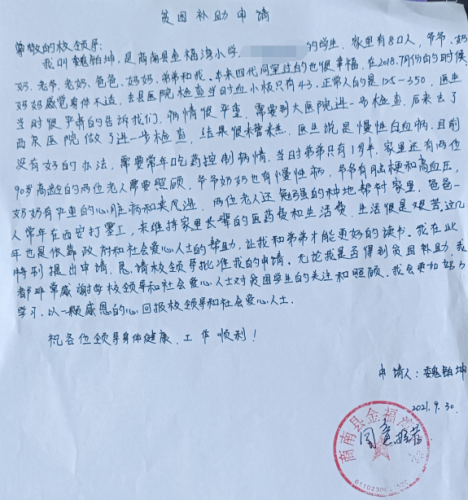 贫困补助申请
尊敬的校领导:
我叫魏铂坤,是商南县金福湾小学 的学生,家里有8口人,爷爷、奶
奶、老爷、老奶、爸爸、妈妈、弟弟和我,本来四代同堂过的也很幸福,在2018.7月份的时候
妈妈感觉身体不适,去县医院检查当时血小板只有43,正常人的是125-350,医生
当时很严肃的告诉我们,病情很严重,需要到大医院进一步检查,后来去了
西京医院做了进一步检查,结果很糟糕,医生说是慢性白血病,目前
没有好的办法,需要常年口吃药控制病情,当时弟弟只有1岁半,家里还有两位
90岁高龄的两位老人需要照顾,爷爷奶奶也有慢性病,爷爷有脑梗和高血压,
奶奶有严重的心脏病和类风湿,两位老人还勉强的种地帮针家里,爸爸一
人常年在西安打零工,来维持家里长辈的医药费和生活费,生活很是艰苦,这几
年也是依靠政府和社会爱心人士的帮助,让我和弟弟才能更好的读书。我在此
特别提出申请,恳请校领导批准我的申请。无论我是否得到贫困补助,我
都非常感谢等校领导和社会爱心人士对贫困学生的关注和照顾,我会更加努力
学习,以一颗感恩的心,回报校领导和社会爱心人士。
祝各位领导身体健康,工作顺利!
申请人:魏铂坤
2021.9.30.
商南县金福
同意推荐